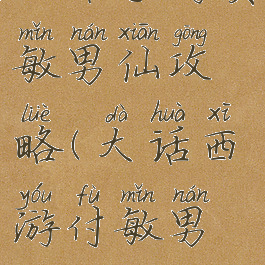 mǐn nán xiān gòng
敏男仙攻
lüè dà huà xī
略(大话西
yóu fù mǐn nán
游付敏男